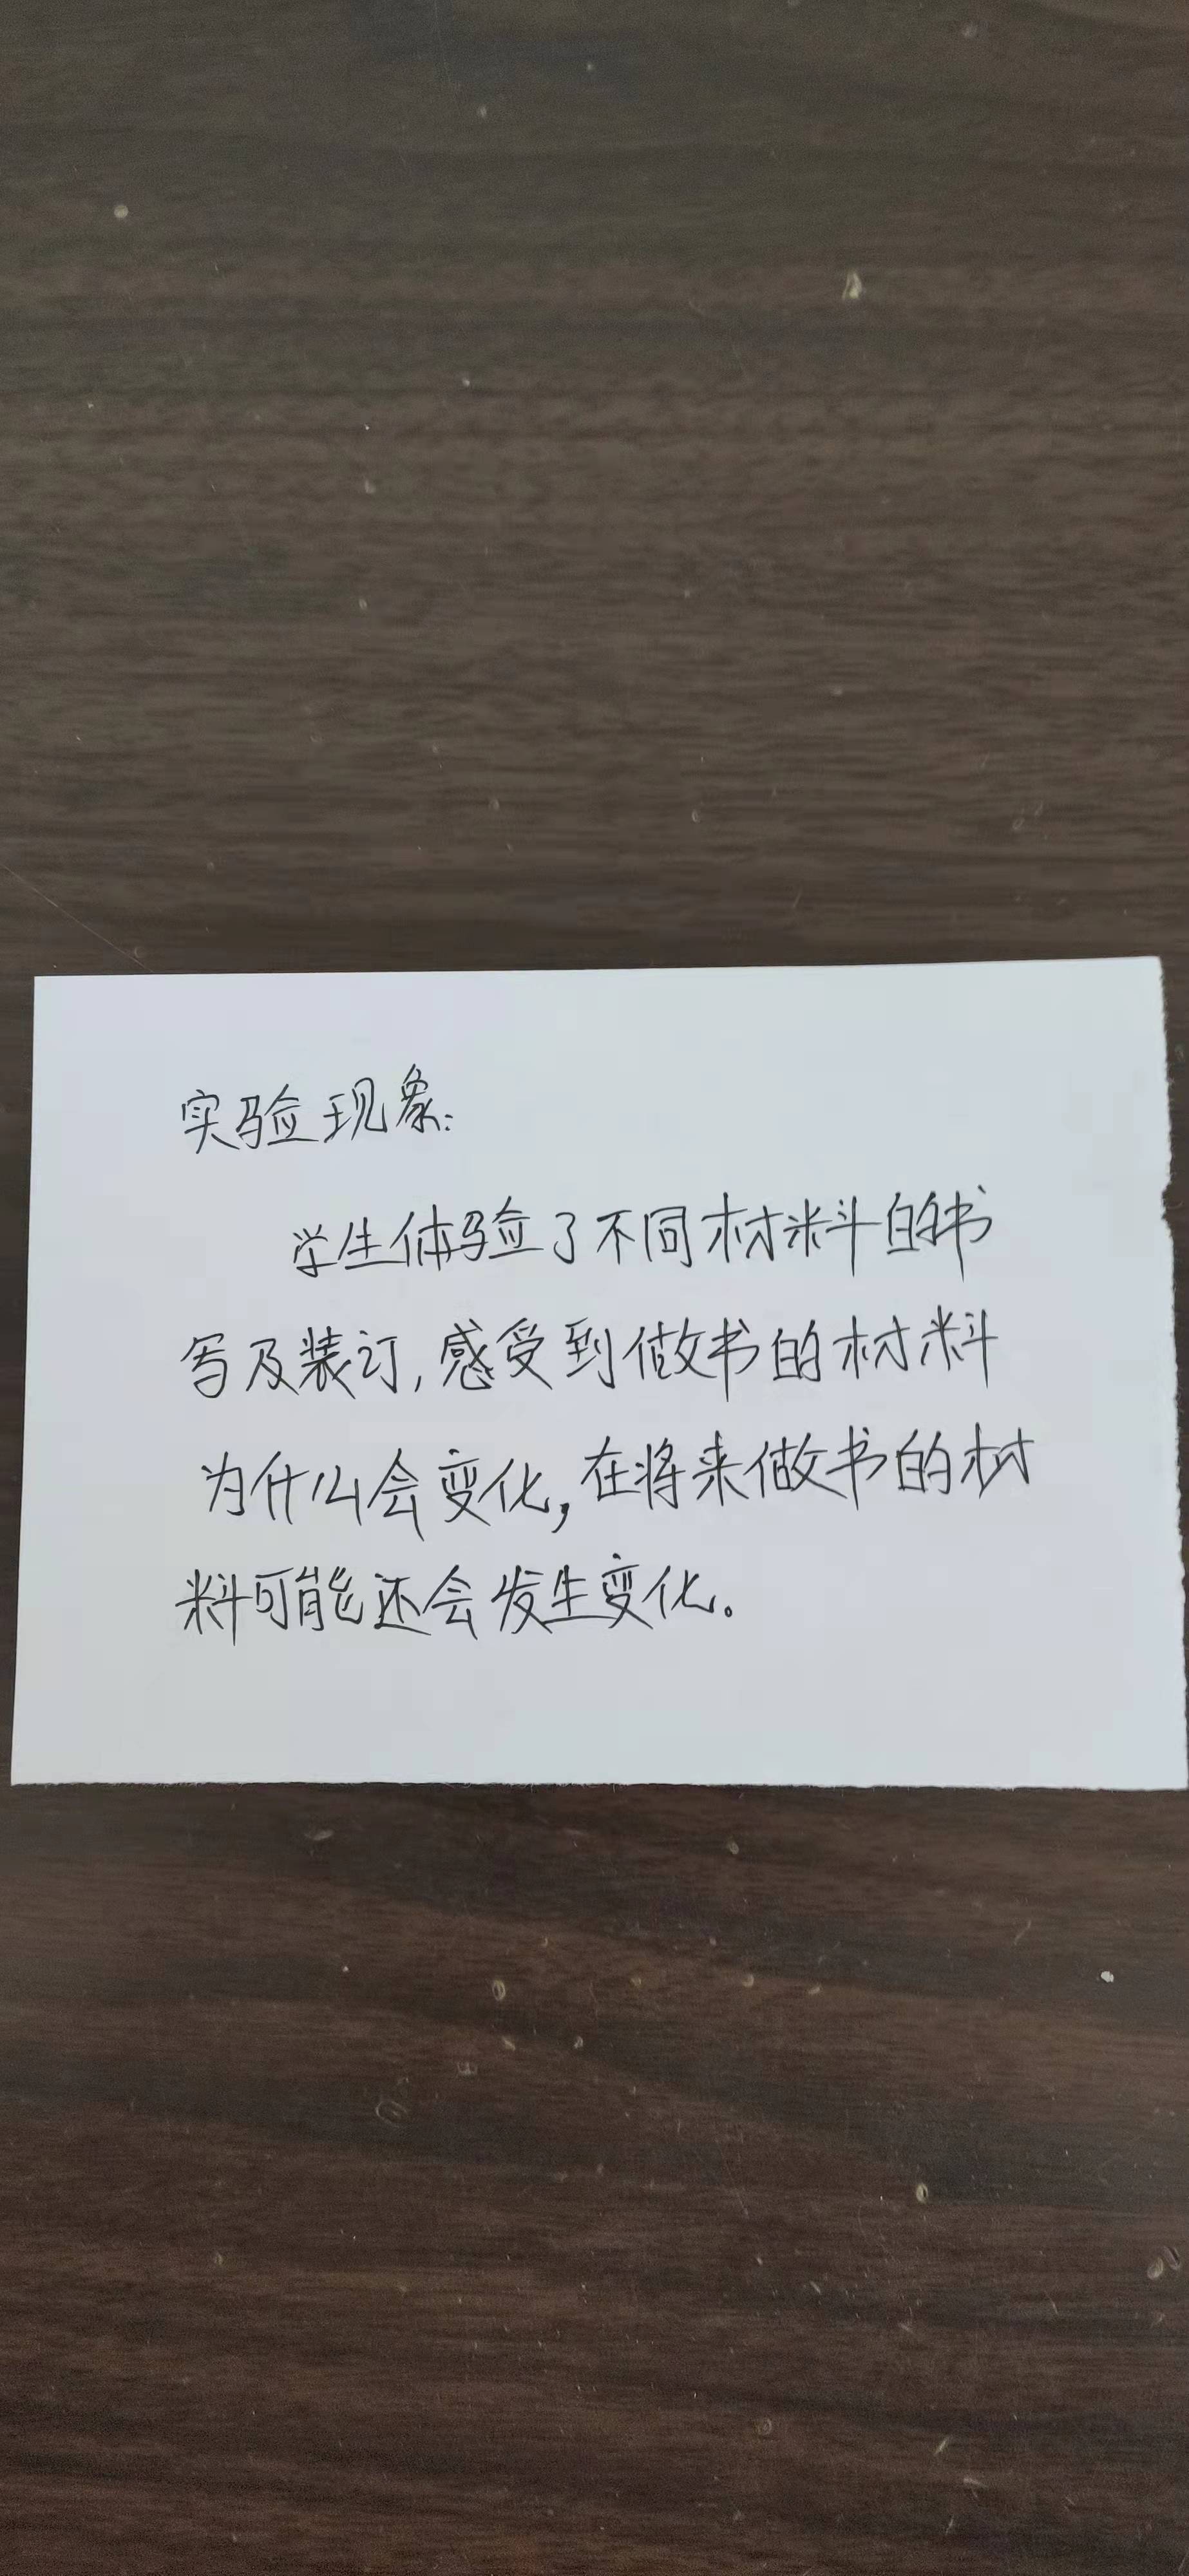 实验现象:
学生体验了不同材料的书
写及装订,感受到做书的材料
为什么会变化,在将来做书的材
料可能还会发生变化。